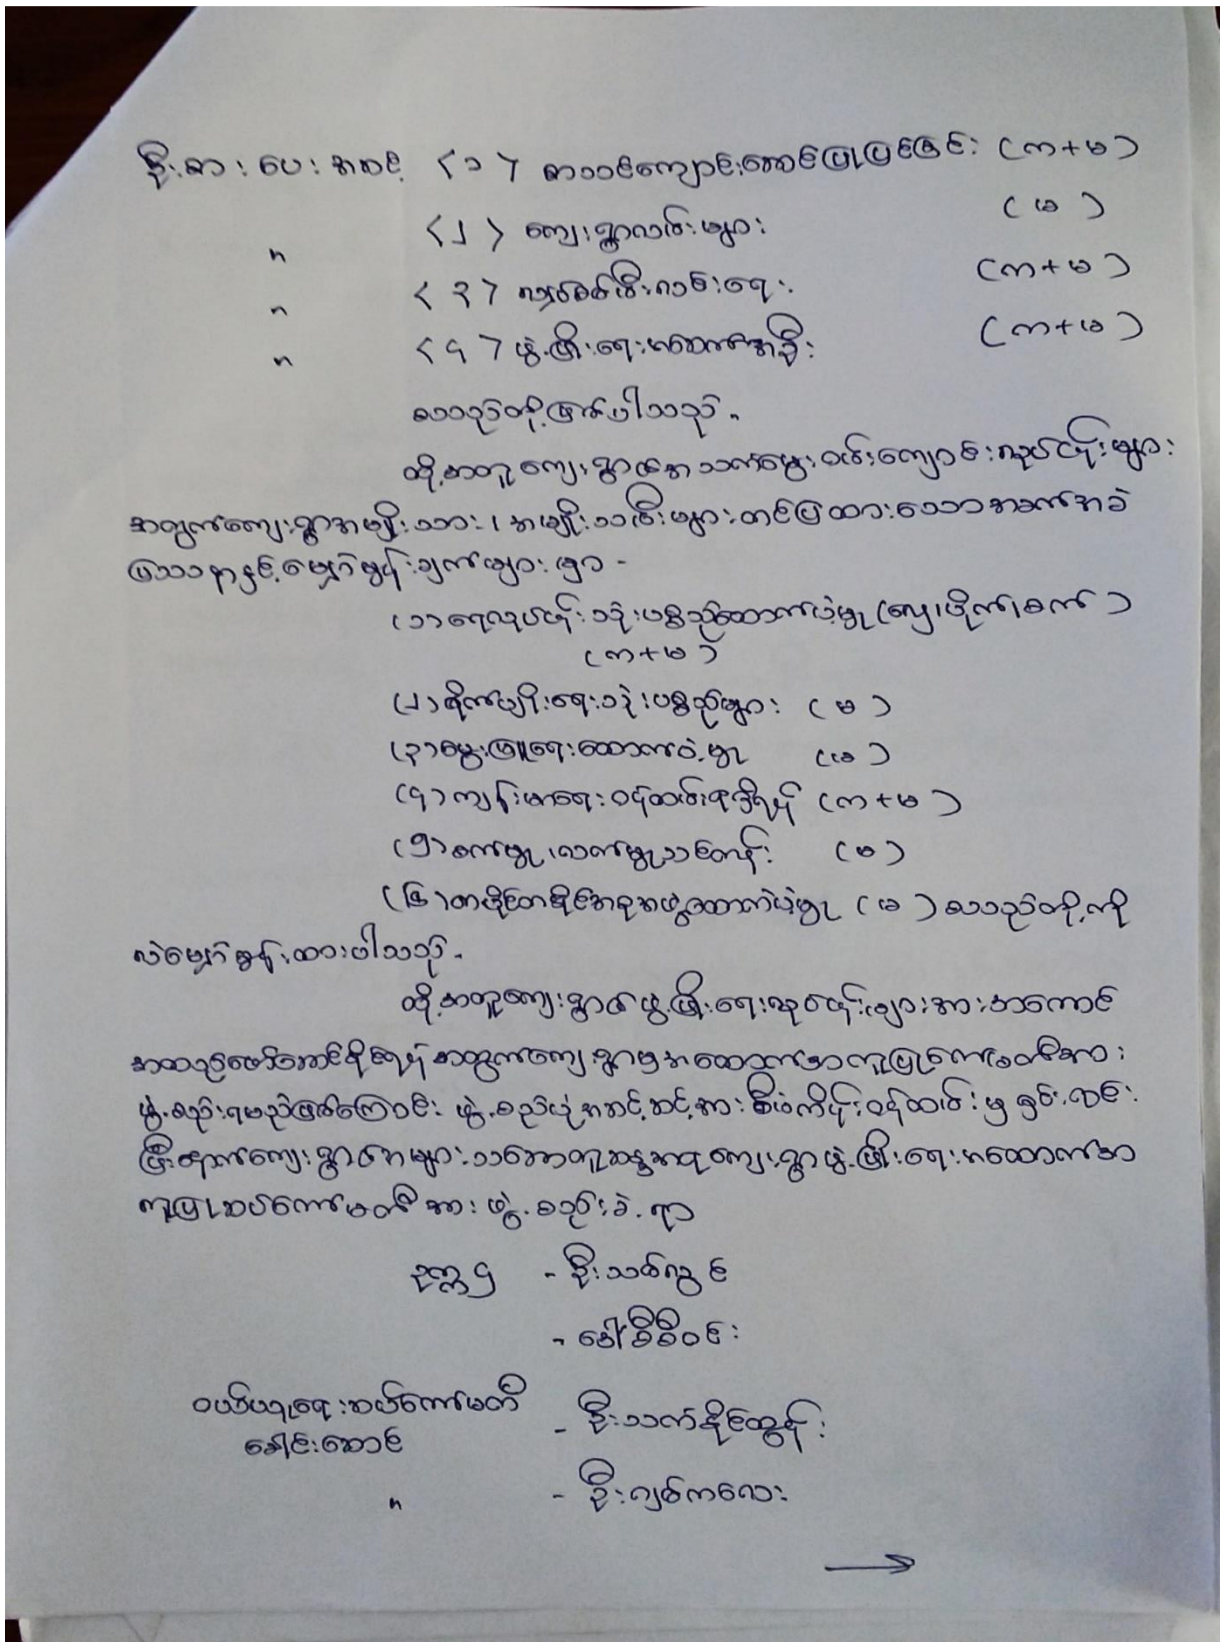 ဦးစားပေးအဆင့် < ၁ > စာသင်ကျောင်းဆောင်ပြုပြင်ခြင်း (က+မ)
" < ၂ > ကျေးရွာလမ်းများ (မ)
" < ၃ > လျှပ်စစ်မီးလင်းရေး (က+မ)
" < ၄ > ဖွံ့ဖြိုးရေးအဆောက်အဦး (က+မ)
စသည်တို့ဖြစ်ပါသည်။
ထို့အတူကျေးရွာ၏အသက်မွေးဝမ်းကျောင်းလုပ်ငန်းများ
အတွက်ကျေးရွာအမျိုးသား၊ အမျိုးသမီးများတင်ပြထားသောအခက်အခဲ
ပြဿနာနှင့်မျှော်မှန်းချက်များမှာ -
(၁) ရေလုပ်ငန်းသုံးပစ္စည်ထောက်ပံ့မှု (လှေ၊ပိုက်၊စက်)
(က+မ)
(၂) စိုက်ပျိုးရေးသုံးပစ္စည်များ (မ)
(၃) မွေးမြူရေးထောက်ပံ့မှု (မ)
(၄) ကျန်းမာရေးဝန်ထမ်းစုံဒီရန် (က+မ)
(၅) စက်မှု၊လက်မှုသင်တန်း (မ)
(၆) တပိုင်တနိုင်အစုအဖွဲ့ထောက်ပံ့မှု (မ) စသည်တို့ကို
လဲမျှော်မှန်းထားပါသည်။
ထို့အတူကျေးရွာ၏ဖွံ့ဖြိုးရေးလုပ်ငန်းများအားအကောင်
အထည်ဖော်ဆောင်နိုင်ရန်အတွက်ကျေးရွာမှအထောက်အကူပြုကော်မတီအား
ဖွဲ့စည်းရမည်ဖြစ်ကြောင်း ဖွဲ့စည်ပုံအဆင့်ဆင့်အား စီမံကိန်းဝန်ထမ်းမှရှင်းလင်း
ပြီးနောက်ကျေးရွာ၏အများသဘောတူဆန္ဒအရကျေးရွာဖွံ့ဖြိုးရေးအထောက်အ
ကူပြုဆပ်ကော်မတီအား ဖွဲ့စည်းခဲ့ရာ
ဥက္ကဌ - ဦးသစ်လွင်
- ဒေါ်မိမိဝင်း
ဝယ်ယူရေးဆပ်ကော်မတီ - ဦးသက်နိုင်ထွန်း
ခေါင်းဆောင်
" - ဦးဂျစ်ကလေး